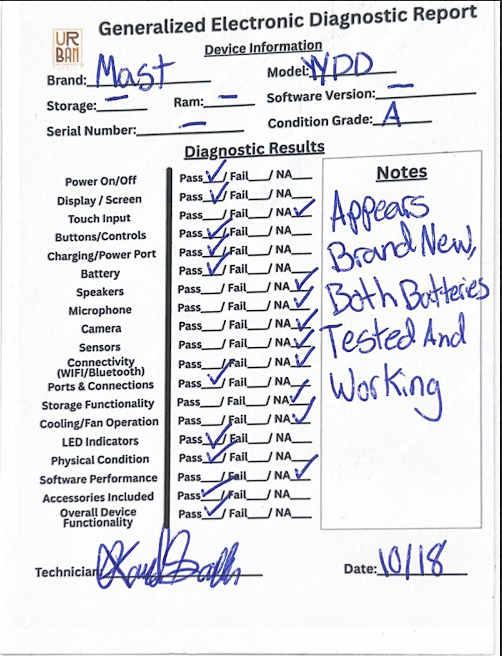 UR
BAN
Generalized Electronic Diagnostic Report
Device Information
Brand: Mast Model: YDD
Storage: — Ram: — Software Version: —
Serial Number: — Condition Grade: A
Diagnostic Results
Power On/Off Pass✓/ Fail__/ NA__
Display / Screen Pass✓/ Fail__/ NA__
Touch Input Pass__/ Fail__/ NA✓
Buttons/Controls Pass✓/ Fail__/ NA__
Charging/Power Port Pass✓/ Fail__/ NA__
Battery Pass✓/ Fail__/ NA__
Speakers Pass__/ Fail__/ NA✓
Microphone Pass__/ Fail__/ NA✓
Camera Pass__/ Fail__/ NA✓
Sensors Pass__/ Fail__/ NA✓
Connectivity
(WIFI/Bluetooth) Pass__/ Fail__/ NA✓
Ports & Connections Pass✓/ Fail__/ NA__
Storage Functionality Pass__/ Fail__/ NA✓
Cooling/Fan Operation Pass__/ Fail__/ NA✓
LED Indicators Pass✓/ Fail__/ NA__
Physical Condition Pass✓/ Fail__/ NA__
Software Performance Pass__/ Fail__/ NA✓
Accessories Included Pass✓/ Fail__/ NA__
Overall Device
Functionality Pass✓/ Fail__/ NA__
Notes
Appears
Brand New,
Both Batteries
Tested And
Working
Technician: Date: 10/18